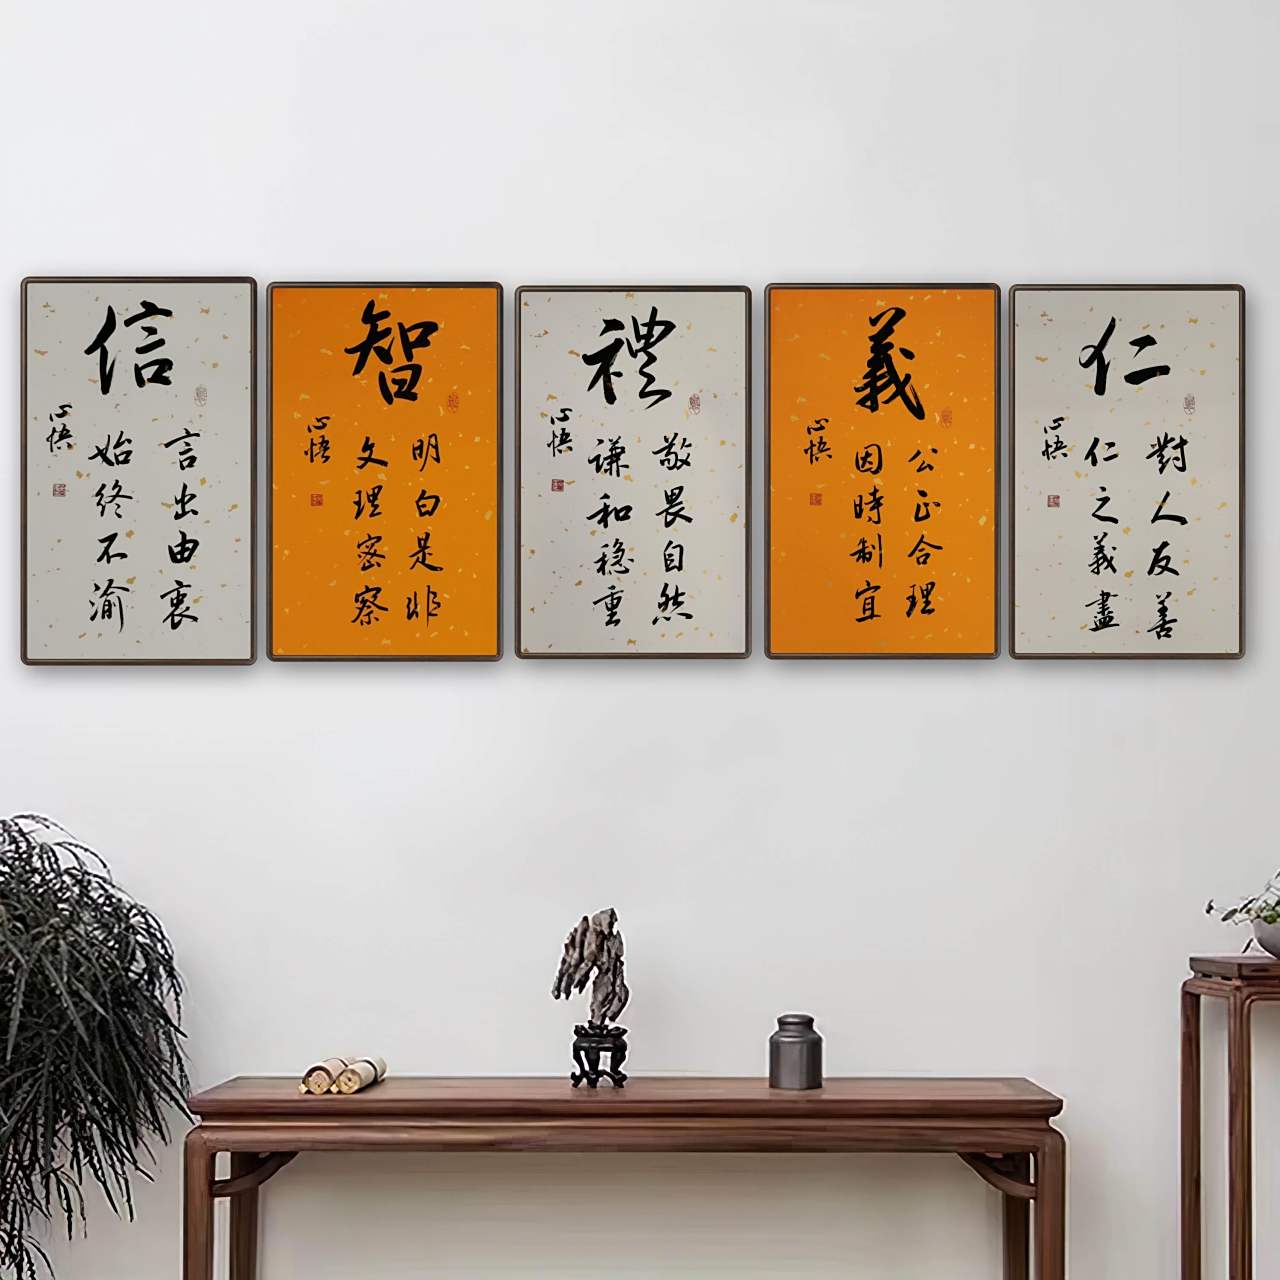 仁
對人友善
仁之義盡
心悟
義
公正合理
因時制宜
心悟
禮
敬畏自然
谦和稳重
心悟
智
明白是非
文理密察
心悟
信
言出由衷
始終不渝
心悟